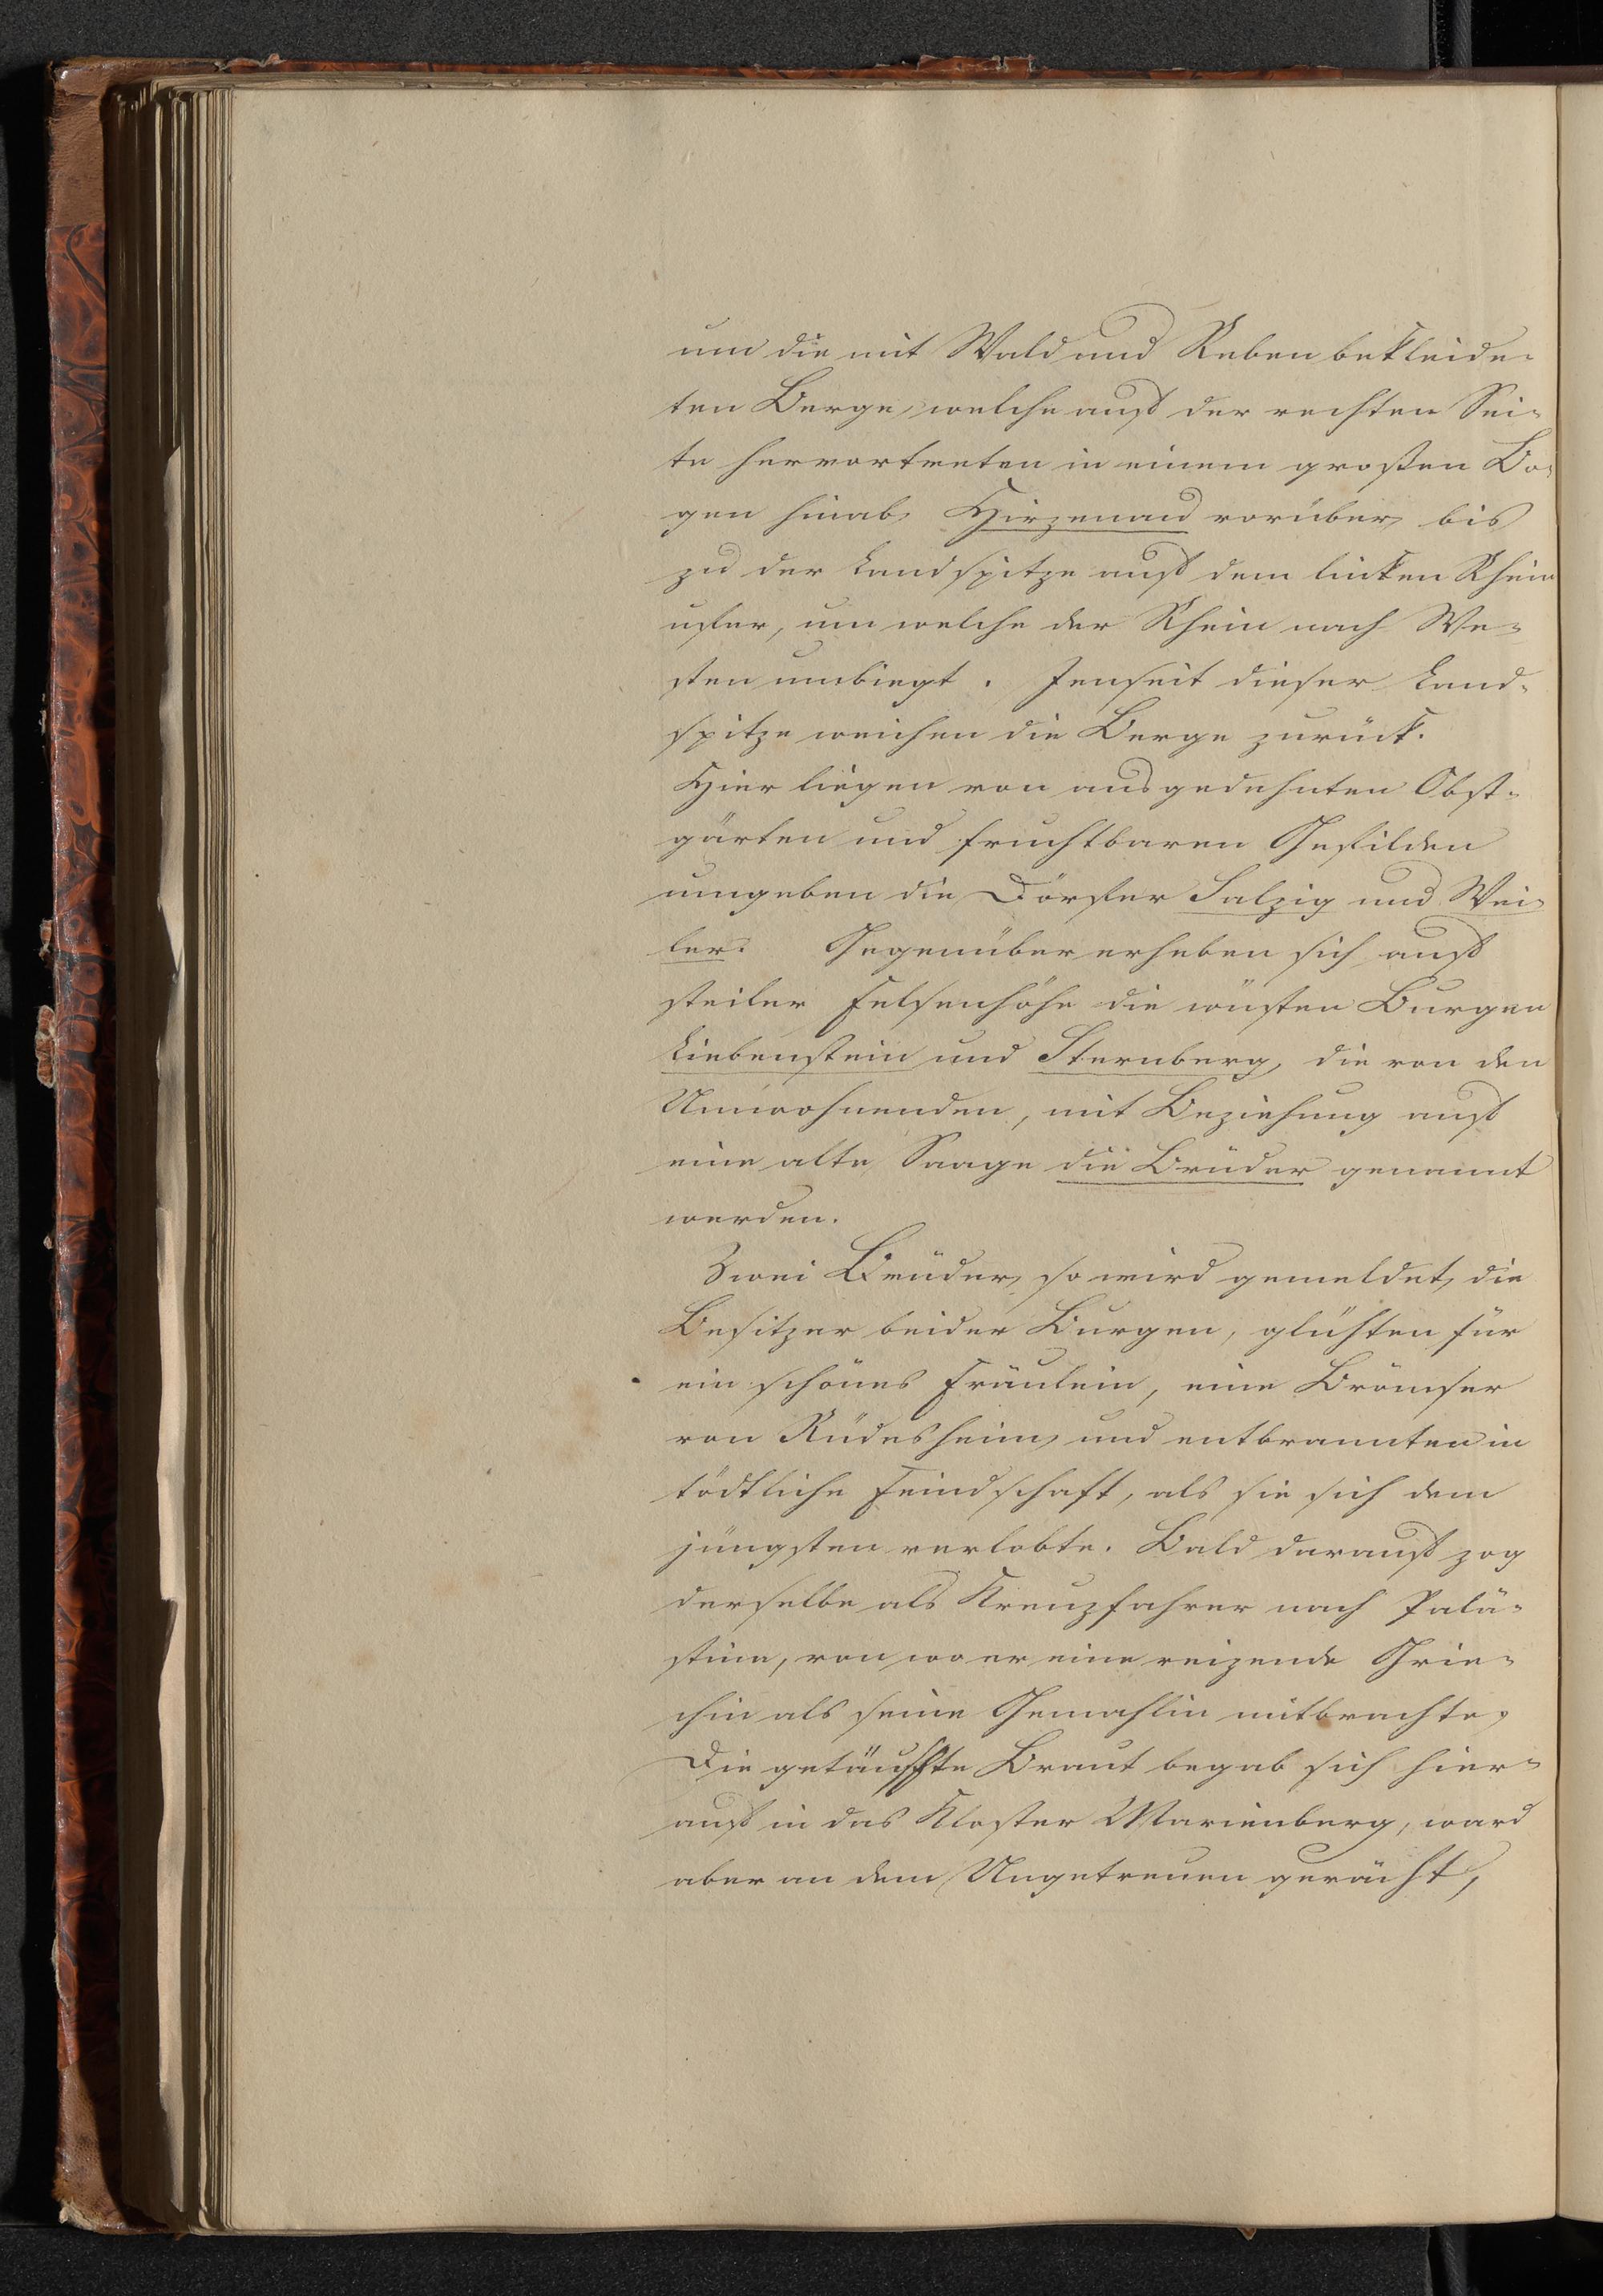 um die mit Wald und Reben bekleide-
ten Berge, welche auf der rechten Sei-
te hervortreten in einem großen Bo-
gen hinab, Hirzenaid vorüber, bis
zu der Landspitze auf dem linken Rhein
ufer, um welche der Rhein nach We-
sten umbiegt. Jenseit dieser Land-
spitze weichen die Berge zurück.
Hier liegen von ausgedehnten Obst-
gärten und fruchtbaren Gefilden
umgeben die Dörfer Salzig und Wei-
ler. Gegenüber erheben sich auf
steiler Felsenhöhe die wüsten Burgen
Liebenstein und Sternberg, die von den
Umwohnenden, mit Beziehung auf
eine alte Saage die Brüder genannt
werden.
Zwei Brüder, so wird gemeldet, die
Besitzer beider Burgen, glühten für
ein schönes Fräulein, eine Brömser
von Rüdesheim, und entbrannten in
tödtliche Feindschaft, als sie sich dem
jüngsten verlobte. Bald darauf zog
derselbe als Kreuzfahrer nach Palä-
stina, von wo er eine reizende Grie-
chin als seine Gemahlin mitbrachte.
Die getäuschte Braut begab sich hier-
auf in das Kloster Marienberg, ward
aber an dem Ungetreuen gerächt,